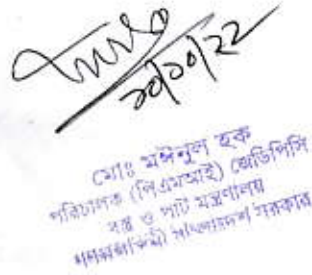 ২০/১০/২২
মোঃ মঈনুল হক
পরিচালক (পিএমআই) জেডিপিসি
বস্ত্র ও পাট মন্ত্রণালয়
গণপ্রজাতন্ত্রী বাংলাদেশ সরকার